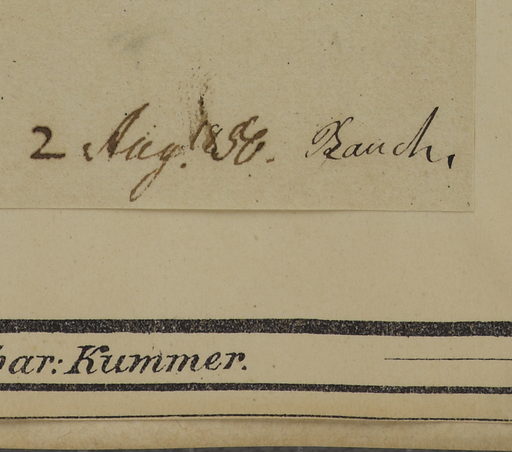 2 Aug. 1856. Rauch.
bar: Kummer.